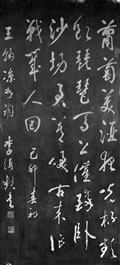 葡萄美酒夜光杯
欲飲琵琶馬上催醉臥
沙場君莫笑古來征
戰幾人回 己卯春初
王翰涼州詞 李海